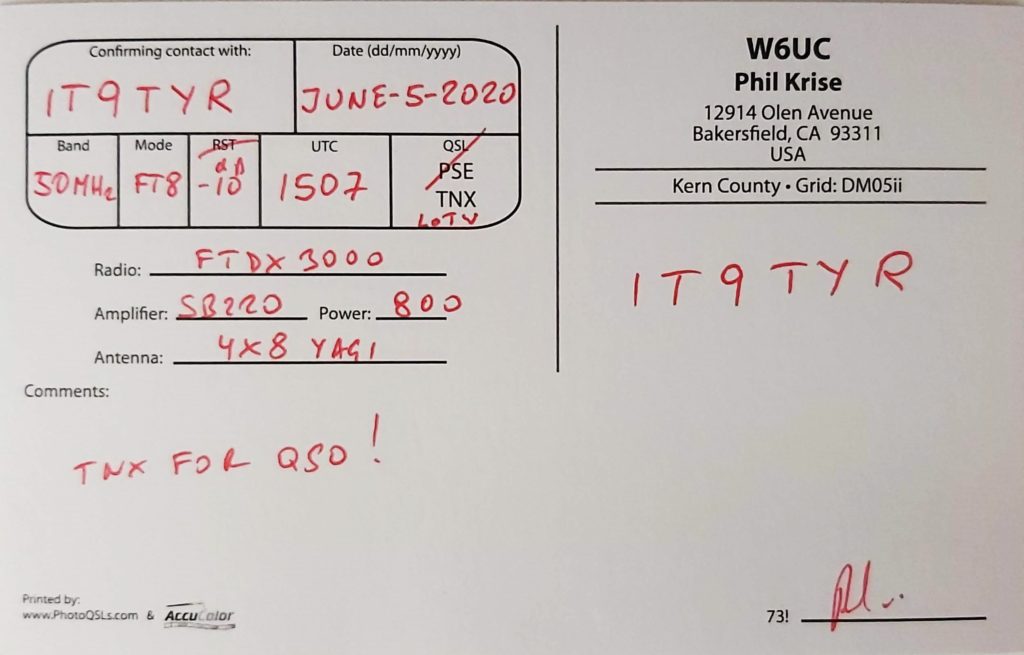 Confirming contact with:
1T9TYR
Date (dd/mm/yyyy)
JUNE-5-2020
Band
50MHz
Mode
FT8
RST
dB
-10
UTC
1507
QSL
PSE
TNX
LOTW
Radio: FTDX 3000
Amplifier: SB220 Power: 800
Antenna: 4X8 YAGI
Comments:
TNX FOR QSO!
Printed by:
www.PhotoQSLs.com & AccuColor
W6UC
Phil Krise
12914 Olen Avenue
Bakersfield, CA 93311
USA
Kern County • Grid: DM05ii
1T9TYR
73!